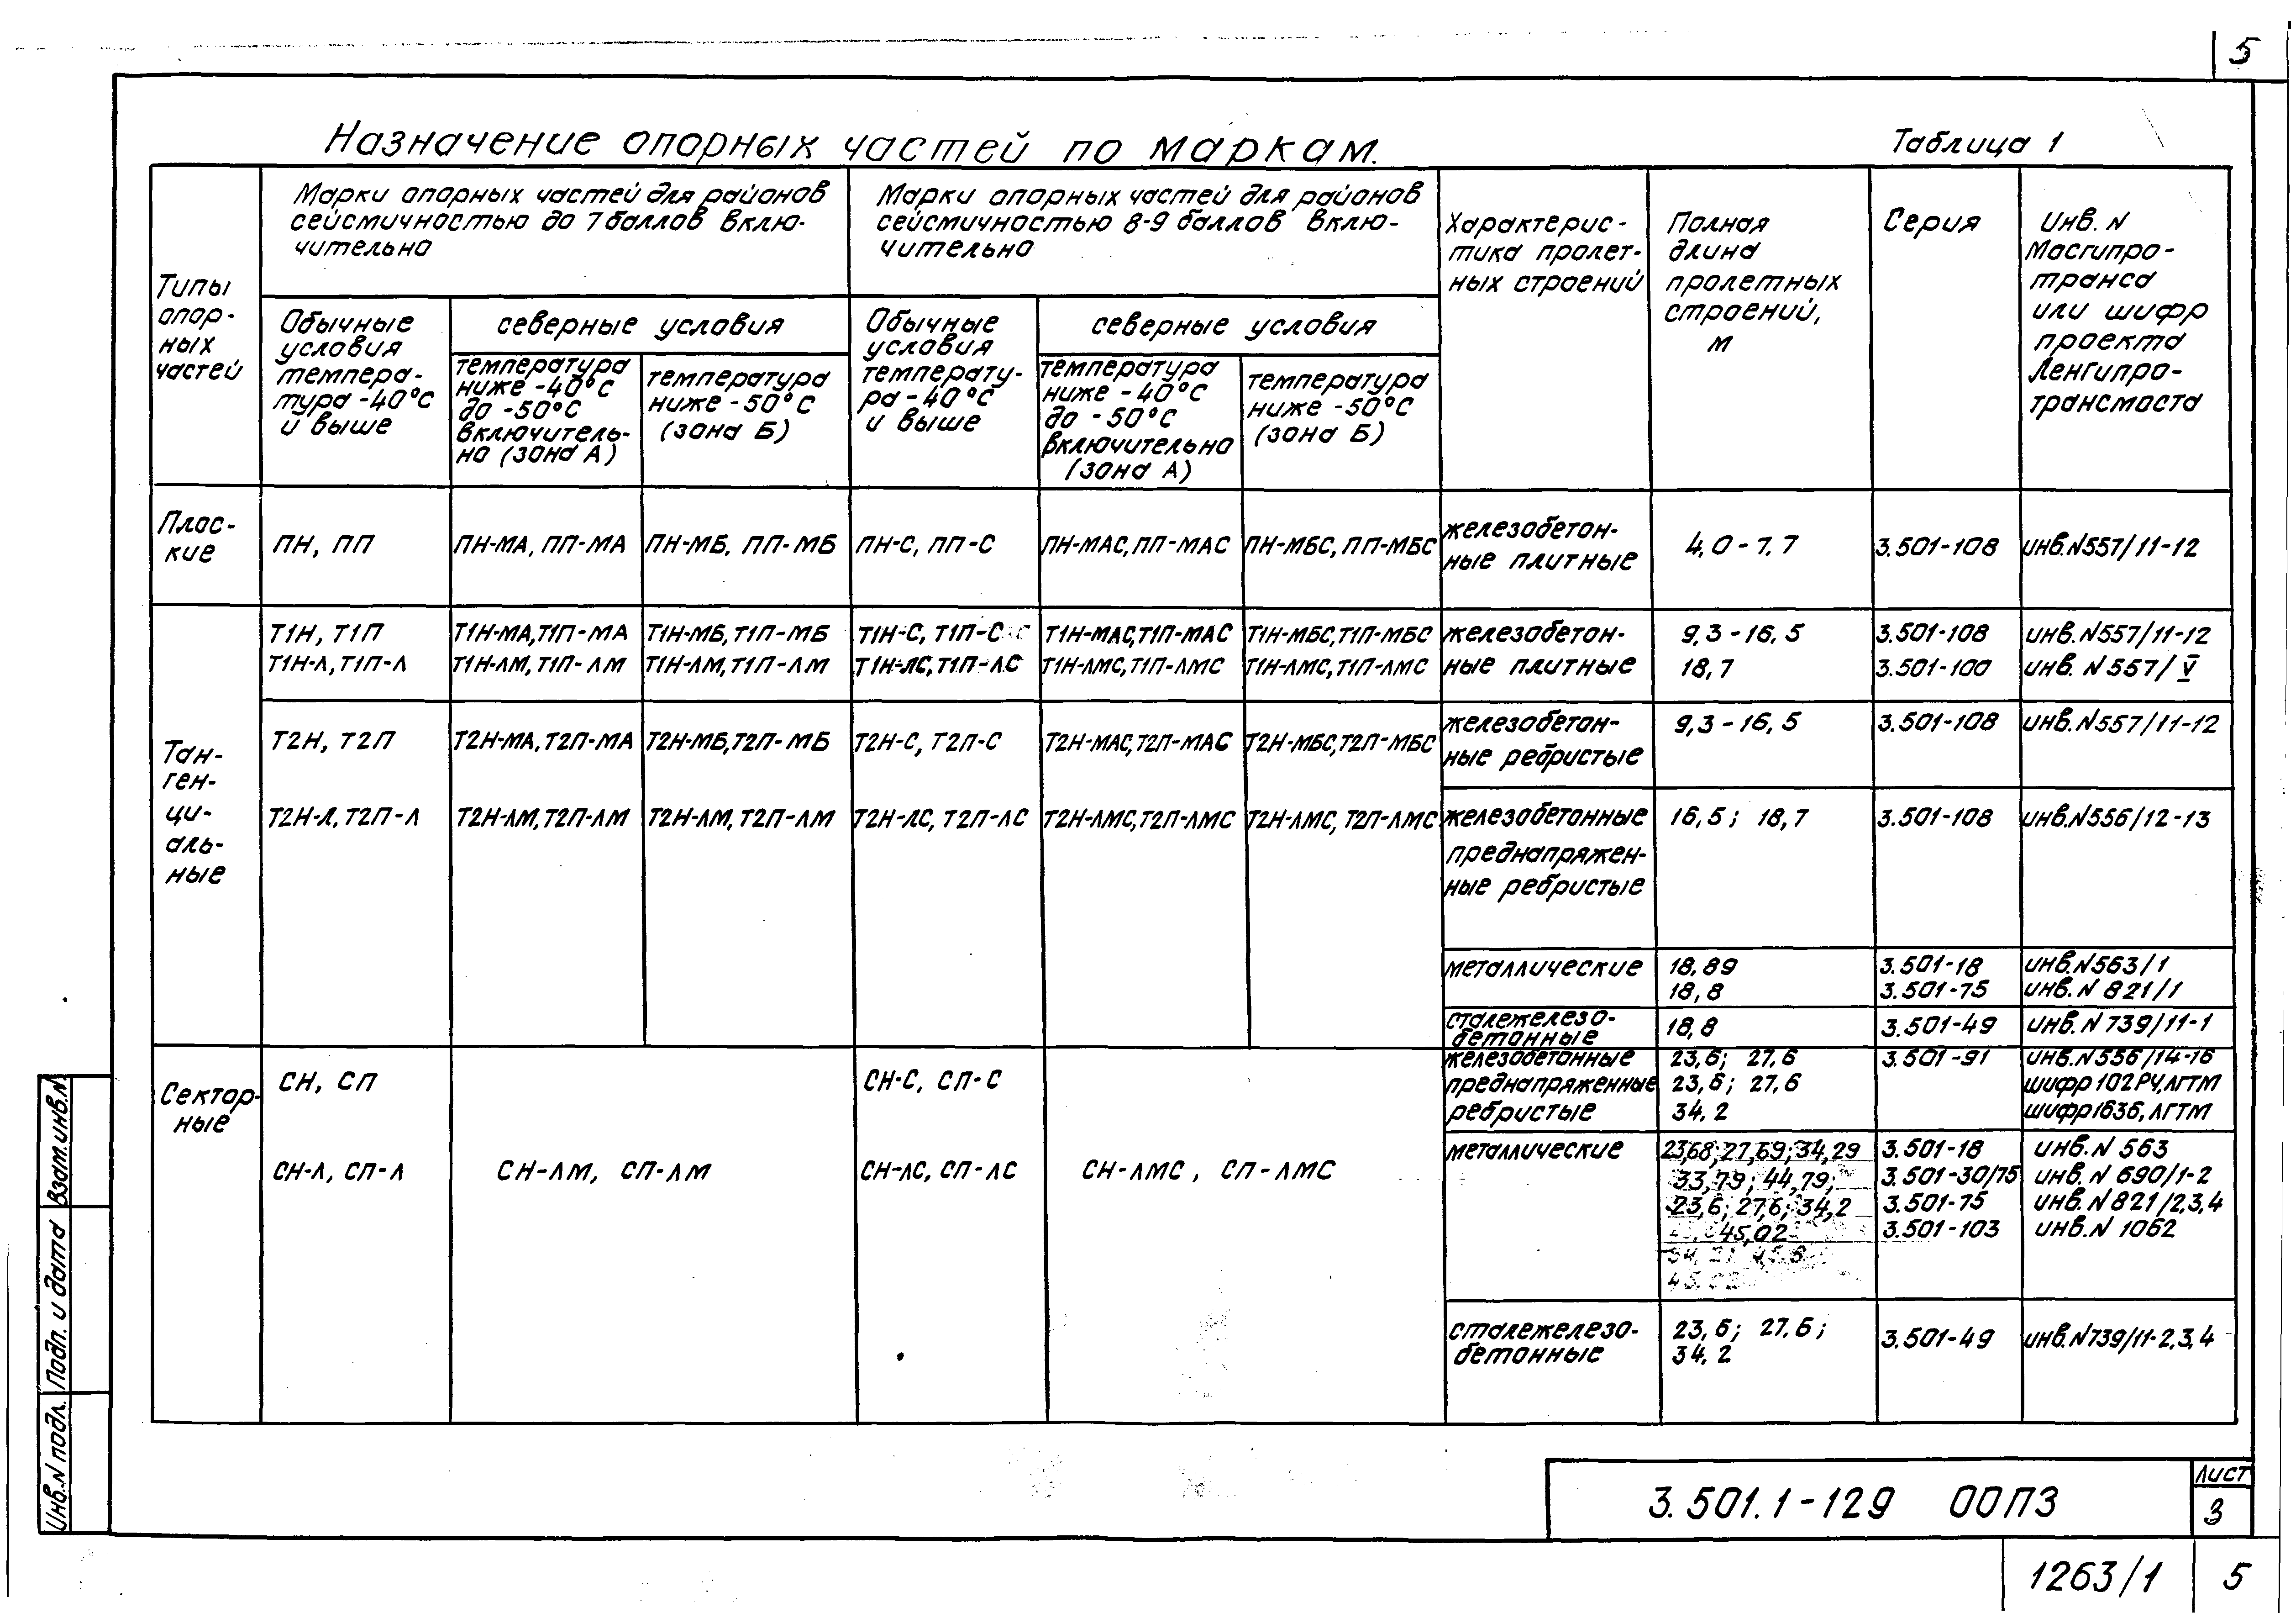 5
Назначение опорных частей по маркам.
Таблица 1
Типы
опор-
ных
частей
Марки опорных частей для районов
сейсмичностью до 7 баллов вклю-
чительно
Марки опорных частей для районов
сейсмичностью 8-9 баллов вклю-
чительно
Характерис-
тика пролет-
ных строений
Полная
длина
пролетных
строений,
м
Серия
Инв. N
Мосгипро-
транса
или шифр
проекта
Ленгипро-
трансмоста
Обычные
условия
темпера-
тура -40°С
и выше
северные условия
температура
ниже -40°С
до -50°С
включитель-
но (зона А)
температура
ниже -50°С
(зона Б)
Обычные
условия
температу-
ра -40°С
и выше
северные условия
температура
ниже -40°С
до -50°С
включительно
(зона А)
температура
ниже -50°С
(зона Б)
Плос-
кие
ПН, ПП
ПН-МА, ПП-МА
ПН-МБ, ПП-МБ
ПН-С, ПП-С
ПН-МАС, ПП-МАС
ПН-МБС, ПП-МБС
железобетон-
ные плитные
4,0-7,7
3.501-108
инв.N557/11-12
Тан-
ген-
ци-
аль-
ные
Т1Н, Т1П
Т1Н-МА, Т1П-МА
Т1Н-МБ, Т1П-МБ
Т1Н-С, Т1П-С
Т1Н-МАС, Т1П-МАС
Т1Н-МБС, Т1П-МБС
железобетон-
9,3-16,5
3.501-108
инв.N557/11-12
Т1Н-Л, Т1П-Л
Т1Н-ЛМ, Т1П-ЛМ
Т1Н-ЛМ, Т1П-ЛМ
Т1Н-ЛС, Т1П-ЛС
Т1Н-ЛМС, Т1П-ЛМС
Т1Н-ЛМС, Т1П-ЛМС
ные плитные
18,7
3.501-100
инв. N557/V
Т2Н, Т2П
Т2Н-МА, Т2П-МА
Т2Н-МБ, Т2П-МБ
Т2Н-С, Т2П-С
Т2Н-МАС, Т2П-МАС
Т2Н-МБС, Т2П-МБС
железобетон-
ные ребристые
9,3-16,5
3.501-108
инв.N557/11-12
Т2Н-Л, Т2П-Л
Т2Н-ЛМ, Т2П-ЛМ
Т2Н-ЛМ, Т2П-ЛМ
Т2Н-ЛС, Т2П-ЛС
Т2Н-ЛМС, Т2П-ЛМС
Т2Н-ЛМС, Т2П-ЛМС
железобетонные
преднапряжен-
ные ребристые
16,5; 18,7
3.501-108
инв.N556/12-13
металлические
18,89
3.501-18
инв.N563/1
18,8
3.501-75
инв. N 821/1
сталежелезо-
бетонные
18,8
3.501-49
инв. N 739/11-1
Сектор-
ные
СН, СП
СН-С, СП-С
железобетонные
преднапряженные
ребристые
23,6; 27,6
23,6; 27,6
34,2
3.501-91
инв.N556/14-16
шифр 102РЧ, ЛГТМ
шифр 1636, ЛГТМ
СН-Л, СП-Л
СН-ЛМ, СП-ЛМ
СН-ЛС, СП-ЛС
СН-ЛМС, СП-ЛМС
металлические
23,68; 27,69; 34,29
33,79; 44,79;
23,6; 27,6; 34,2
45,02
3.501-18
3.501-30/75
3.501-75
3.501-103
инв. N 563
инв. N 690/1-2
инв. N 821/2,3,4
инв.N 1062
сталежелезо-
бетонные
23,6; 27,6;
34,2
3.501-49
инв.N739/11-2,3,4
Взам.инв.N
Подп. и дата
Инв.N подл.
3.501.1-129 00ПЗ
Лист
3
1263/1
5